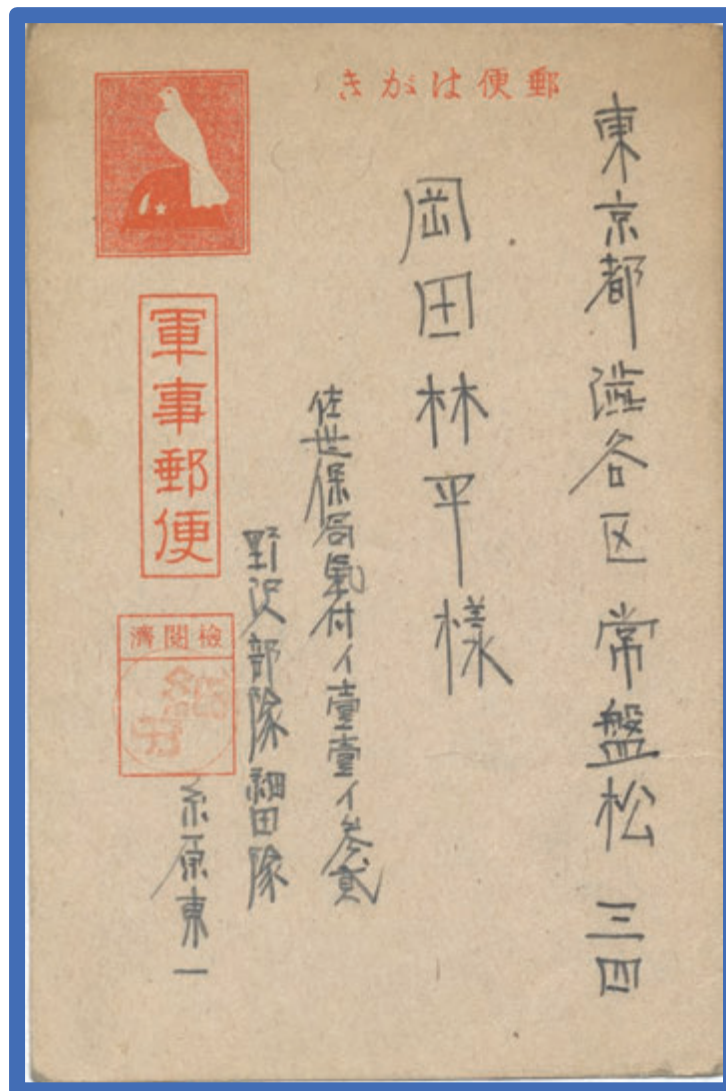 郵便はがき
東京都澁谷区常盤松 三四
岡田林平様
佐世保局氣付イ壹壹イ参貳
野沢部隊細田隊
糸原東一
軍事郵便
檢閲濟